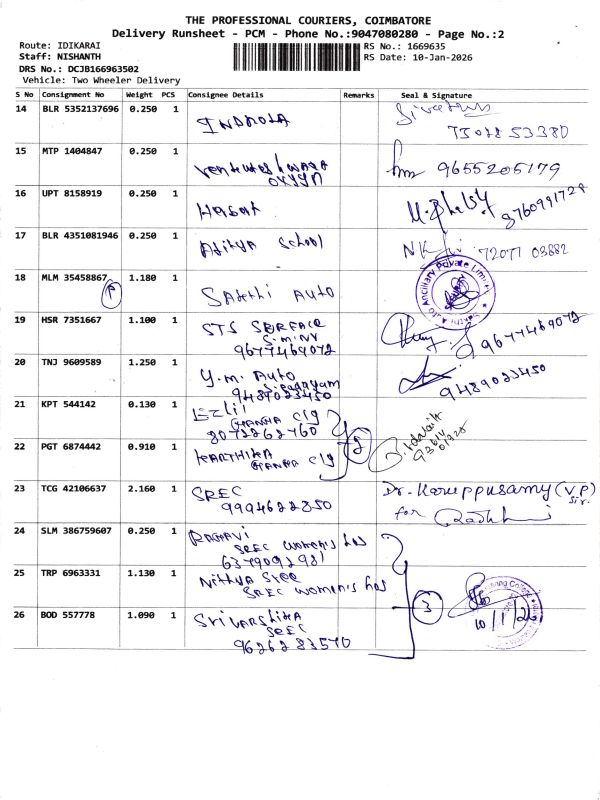 THE PROFESSIONAL COURIERS, COIMBATORE
Delivery Runsheet - PCM - Phone No.:9047080280 - Page No.:2
Route: IDIKARAI
Staff: NISHANTH
DRS No.: DCJB166963502
Vehicle: Two Wheeler Delivery
RS No.: 1669635
RS Date: 10-Jan-2026
S No Consignment No Weight PCS Consignee Details Remarks Seal & Signature
14 BLR 5352137696 0.250 1
15 MTP 1404847 0.250 1 9655205179
16 UPT 8158919 0.250 1 8760991729
17 BLR 4351081946 0.250 1 Aditya School
18 MLM 35458867 1.180 1 Sakthi Auto
Ancillary Private Limited
19 HSR 7351667 1.100 1 STS SURFACE
9677469072 9677469072
20 TNJ 9609589 1.250 1 Y.M. Auto
9489023450 9489023450
21 KPT 544142 0.130 1 Ezlil
GANGA clg
8072262760
2
22 PGT 6874442 0.910 1 KARTHIKA
GANGA clg
23 TCG 42106637 2.160 1 SREC
9994622850
Dr. Karuppusamy (V.P)
Sir.
for
24 SLM 386759607 0.250 1 RAGAVI
SREC women's hos
6379092981
25 TRP 6963331 1.130 1 Nithya Sree
SREC women's hos
3
26 BOD 557778 1.090 1 Srivarshika
SREC
9626283570
10/1/26